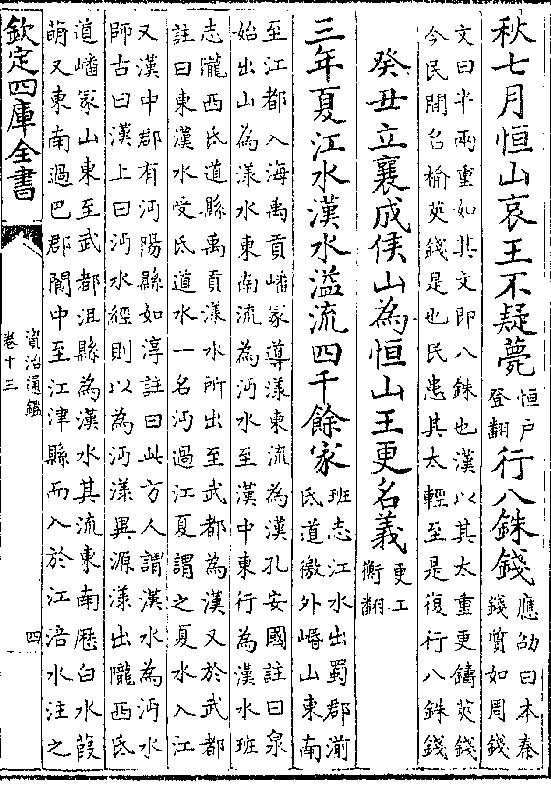 秋七月恒山哀王不疑薨恒户登翻行八銖錢應劭曰本秦錢質如周錢
文曰半兩重如其文即八銖也漢以其太重更鑄莢錢
今民閒名榆莢錢是也民患其太輕至是復行八銖錢
癸丑立襄成侯山為恒山王更名義更工衡翻
三年夏江水漢水溢流四千餘家班志江水出蜀郡湔氐道徼外㟭山東南
至江都入海禹貢嶓冢導漾東流為漢孔安國註曰泉
始出山為漾水東南流為沔水至漢中東行為漢水班
志隴西氐道縣禹貢漾水所出至武都為漢又於武都
註曰東漢水受氐道水一名沔過江夏謂之夏水入江
又漢中郡有沔陽縣如淳註曰此方人謂漢水為沔水
師古曰漢上曰沔水經則以為沔漾異源漾出隴西氐
道嶓冢山東至武都沮縣為漢水其流東南歷白水葭
萌又東南過巴郡閬中至江津縣而入於江涪水注之
欽定四庫全書
資治通鑑
卷十三
四